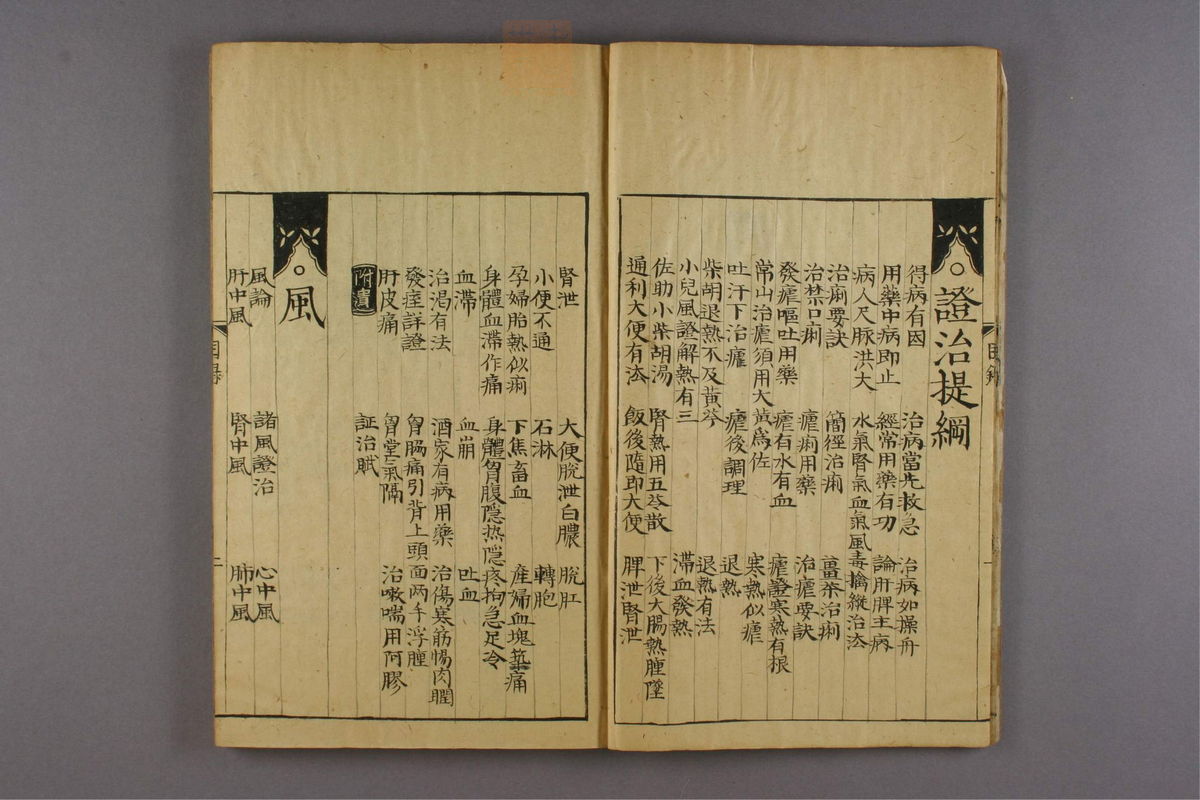 證治提綱
得病有因 治病當先救急 治病如操舟
用藥中病即止 經常用藥有功 論肝脾主病
病人尺脉洪大 水氣腎氣血氣風毒擒縱治法
治痢要訣 簡徑治痢 薑茶治痢
治禁口痢 瘧痢用藥 治瘧要訣
發瘧嘔吐用藥 瘧有水有血 瘧證寒熱有根
常山治瘧須用大黃爲佐 寒熱似瘧
吐汗下治瘧 瘧後調理 退熱
柴胡退熱不及黃芩 退熱有法
小兒風證解熱有三 滯血發熱
佐助小柴胡湯 腎熱用五苓散 下後大腸熱腫墜
通利大便有法 飯後隨即大便 脾泄腎泄
目錄
一
腎泄 大便脫泄白膿 脫肛
小便不通 石淋 轉胞
孕婦胎熱似痢 下焦畜血 產婦血塊築痛
身體血滯作痛 身體胷腹隱热隱疼拘急足冷
血滯 血崩 吐血
治渴有法 酒家有病用藥 治傷寒筋惕肉瞤
發痓詳證 胷膈痛引背上頭面两手浮腫
肝皮痛 胷堂氣隔 治嗽喘用阿膠
附賣 証治賦
風
風論 諸風證治 心中風
肝中風 腎中風 肺中風
目錄
二